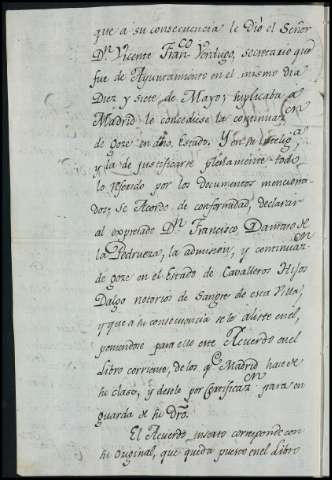 que a su consecuencia le Dió el Señor
Dn. Vicente Franco. Verdugo, secretario que
fue de Ayuntamiento en el mismo dia
Diez y siete de Mayo; suplicaba a
Madrid le concediese la continuazon
de goze en dho. Estado. Y en su inteliga.
y la de justificarse plenamente todo
lo referido por los Documentos menciona-
dos; se Acordó de conformidad, declarar
al expresado Dn. Francisco Damaso de
la Pedrueza, la admision, y continuazon.
de goze en el Estado de Cavalleros Hijos
Dalgo notorios de Sangre de esta Villa,
y que a su consecuencia se le aliste en el,
poniendose para ello este Acuerdo en el
Libro corriente, de los qe. Madrid hace de
su clase, y desele por Certificazon. para en
guarda de su Dro.
El Acuerdo inserto corresponde con
su Original, que queda puesto en el Libro